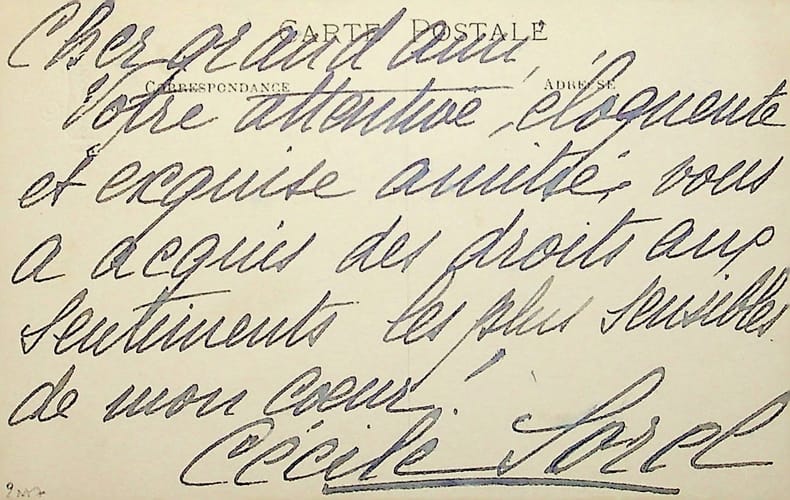 CARTE POSTALE
Cher grand ami,
CORRESPONDANCE ADRESSE
Votre attentive, éloquente
et exquise amitié, vous
a acquis des droits aux
sentiments les plus sensibles
de mon cœur !
Cécile Sorel